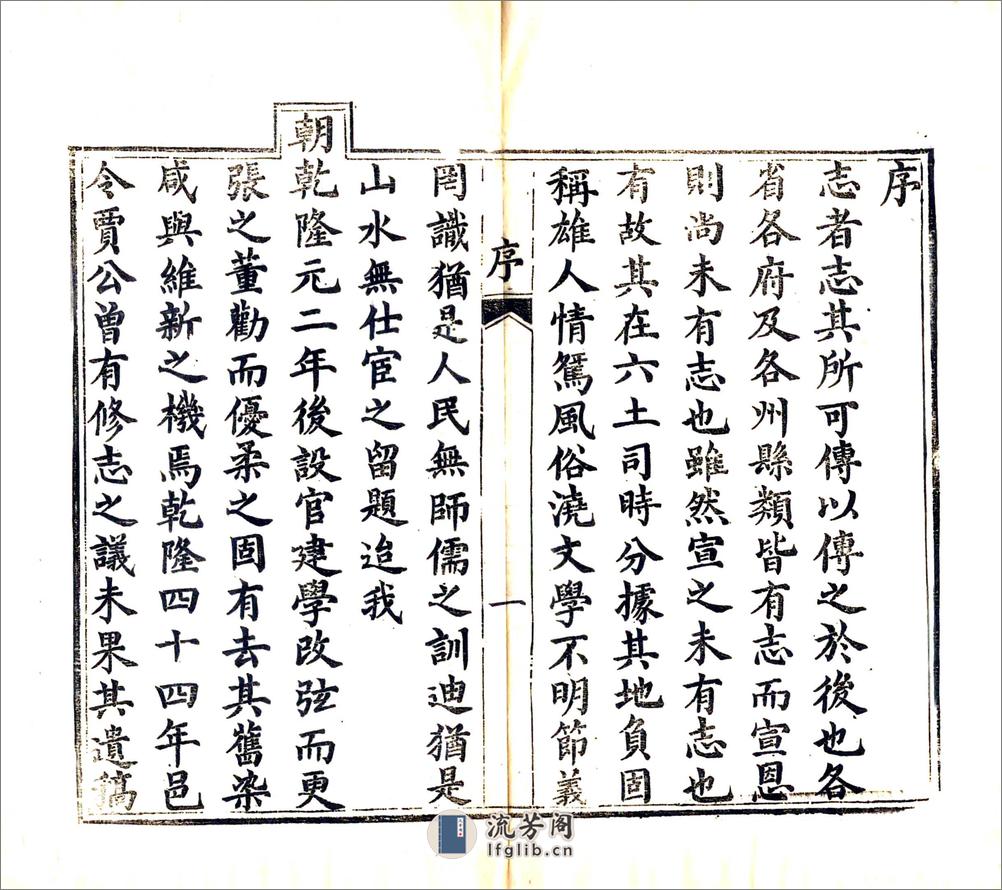 序
志者志其所可傳以傳之於後也各
省各府及各州縣類皆有志而宣恩
則尚未有志也雖然宣之未有志也
有故其在六土司時分據其地負固
稱雄人情鴑風俗澆文學不明節義
序
一
罔識猶是人民無師儒之訓迪猶是
山水無仕宦之留題迨我
朝乾隆元二年後設官建學改弦而更
張之董勸而優柔之固有去其舊染
咸與維新之機焉乾隆四十四年邑
令賈公曾有修志之議未果其遺稿
流芳阁
lfglib.cn